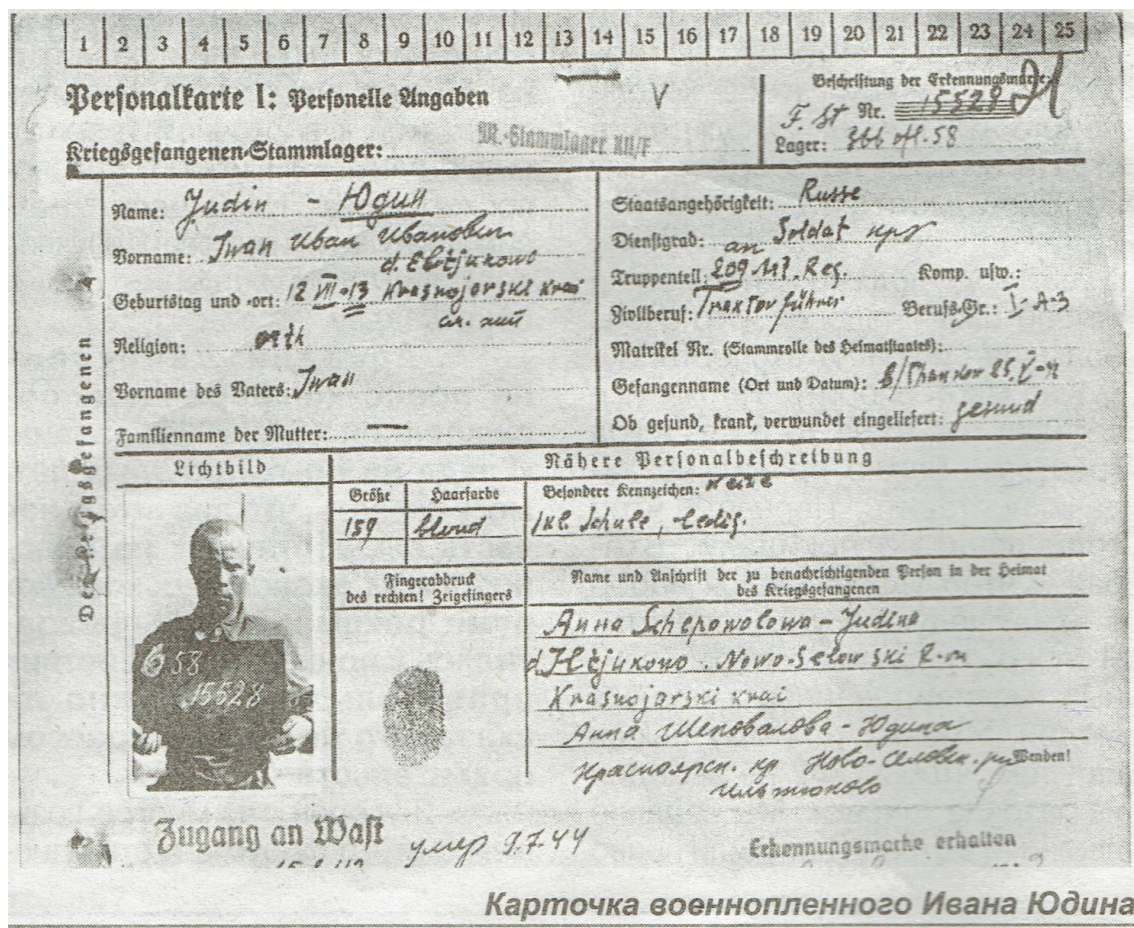 1 2 3 4 5 6 7 8 9 10 11 12 13 14 15 16 17 18 19 20 21 22 23 24 25
Personalkarte I: Personelle Angaben
Beschriftung der Erkennungsmarke
Nr. 15528
Kriegsgefangenen-Stammlager: M.-Stammlager XII/F
Lager: 366 off. 58
Des Kriegsgefangenen
Name: Judin - Юдин
Vorname: Iwan Иван Иванович
Geburtstag und -ort: 12 VII-13 Krasnojarski krai
Religion: orth
Vorname des Vaters: Iwan
Familienname der Mutter: —
Staatsangehörigkeit: Russe
Dienstgrad: Soldat
Truppenteil: 209 Komp. usw.:
Zivilberuf: Traktorführer Berufs-Gr.: I-A-3
Matrikel Nr. (Stammrolle des Heimatstaates):
Gefangenname (Ort und Datum):
Ob gesund, krank, verwundet eingeliefert: gesund
Lichtbild
Nähere Personalbeschreibung
Größe Haarfarbe Besondere Kennzeichen: keine
159 blond Schule, ledig.
Fingerabdruck
des rechten! Zeigefingers
Name und Anschrift der zu benachrichtigenden Person in der Heimat
des Kriegsgefangenen
Anna Schepowolowa-Judina
Nowo-Selowski R-on
Krasnojarski krai
Анна Шеповалова-Юдина
Красноярск. кр Ново-Селовск.
Wenden!
Ильтюково
58
15528
Zugang an WASt
умер 9.7.44
Erkennungsmarke erhalten
Карточка военнопленного Ивана Юдина